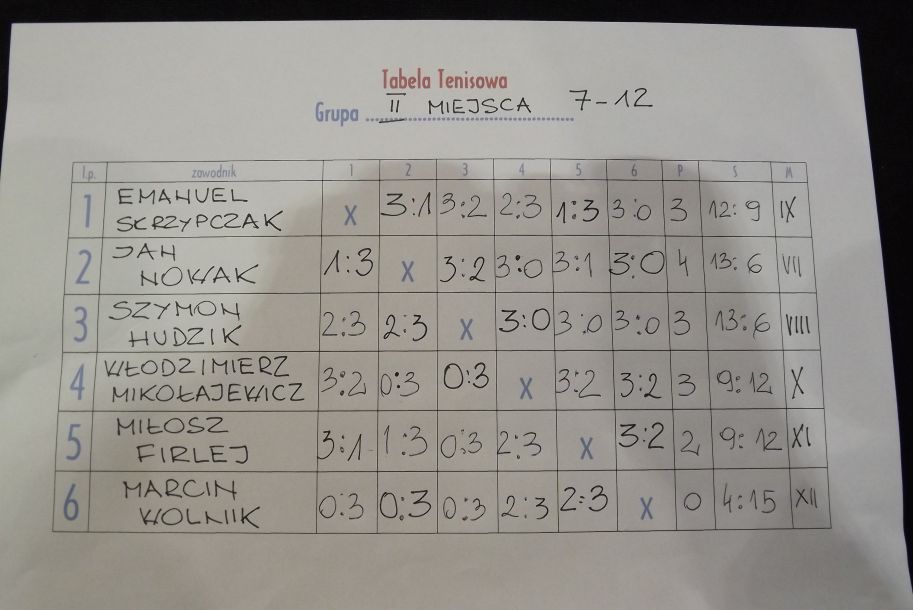 Tabela Tenisowa
Grupa II MIEJSCA 7-12
l.p. zawodnik 1 2 3 4 5 6 P S M
1 EMANUEL SKRZYPCZAK X 3:1 3:2 2:3 1:3 3:0 3 12:9 IX
2 JAN NOWAK 1:3 X 3:2 3:0 3:1 3:0 4 13:6 VII
3 SZYMON HUDZIK 2:3 2:3 X 3:0 3:0 3:0 3 13:6 VIII
4 WŁODZIMIERZ MIKOŁAJEWICZ 3:2 0:3 0:3 X 3:2 3:2 3 9:12 X
5 MIŁOSZ FIRLEJ 3:1 1:3 0:3 2:3 X 3:2 2 9:12 XI
6 MARCIN WOLNIK 0:3 0:3 0:3 2:3 2:3 X 0 4:15 XII